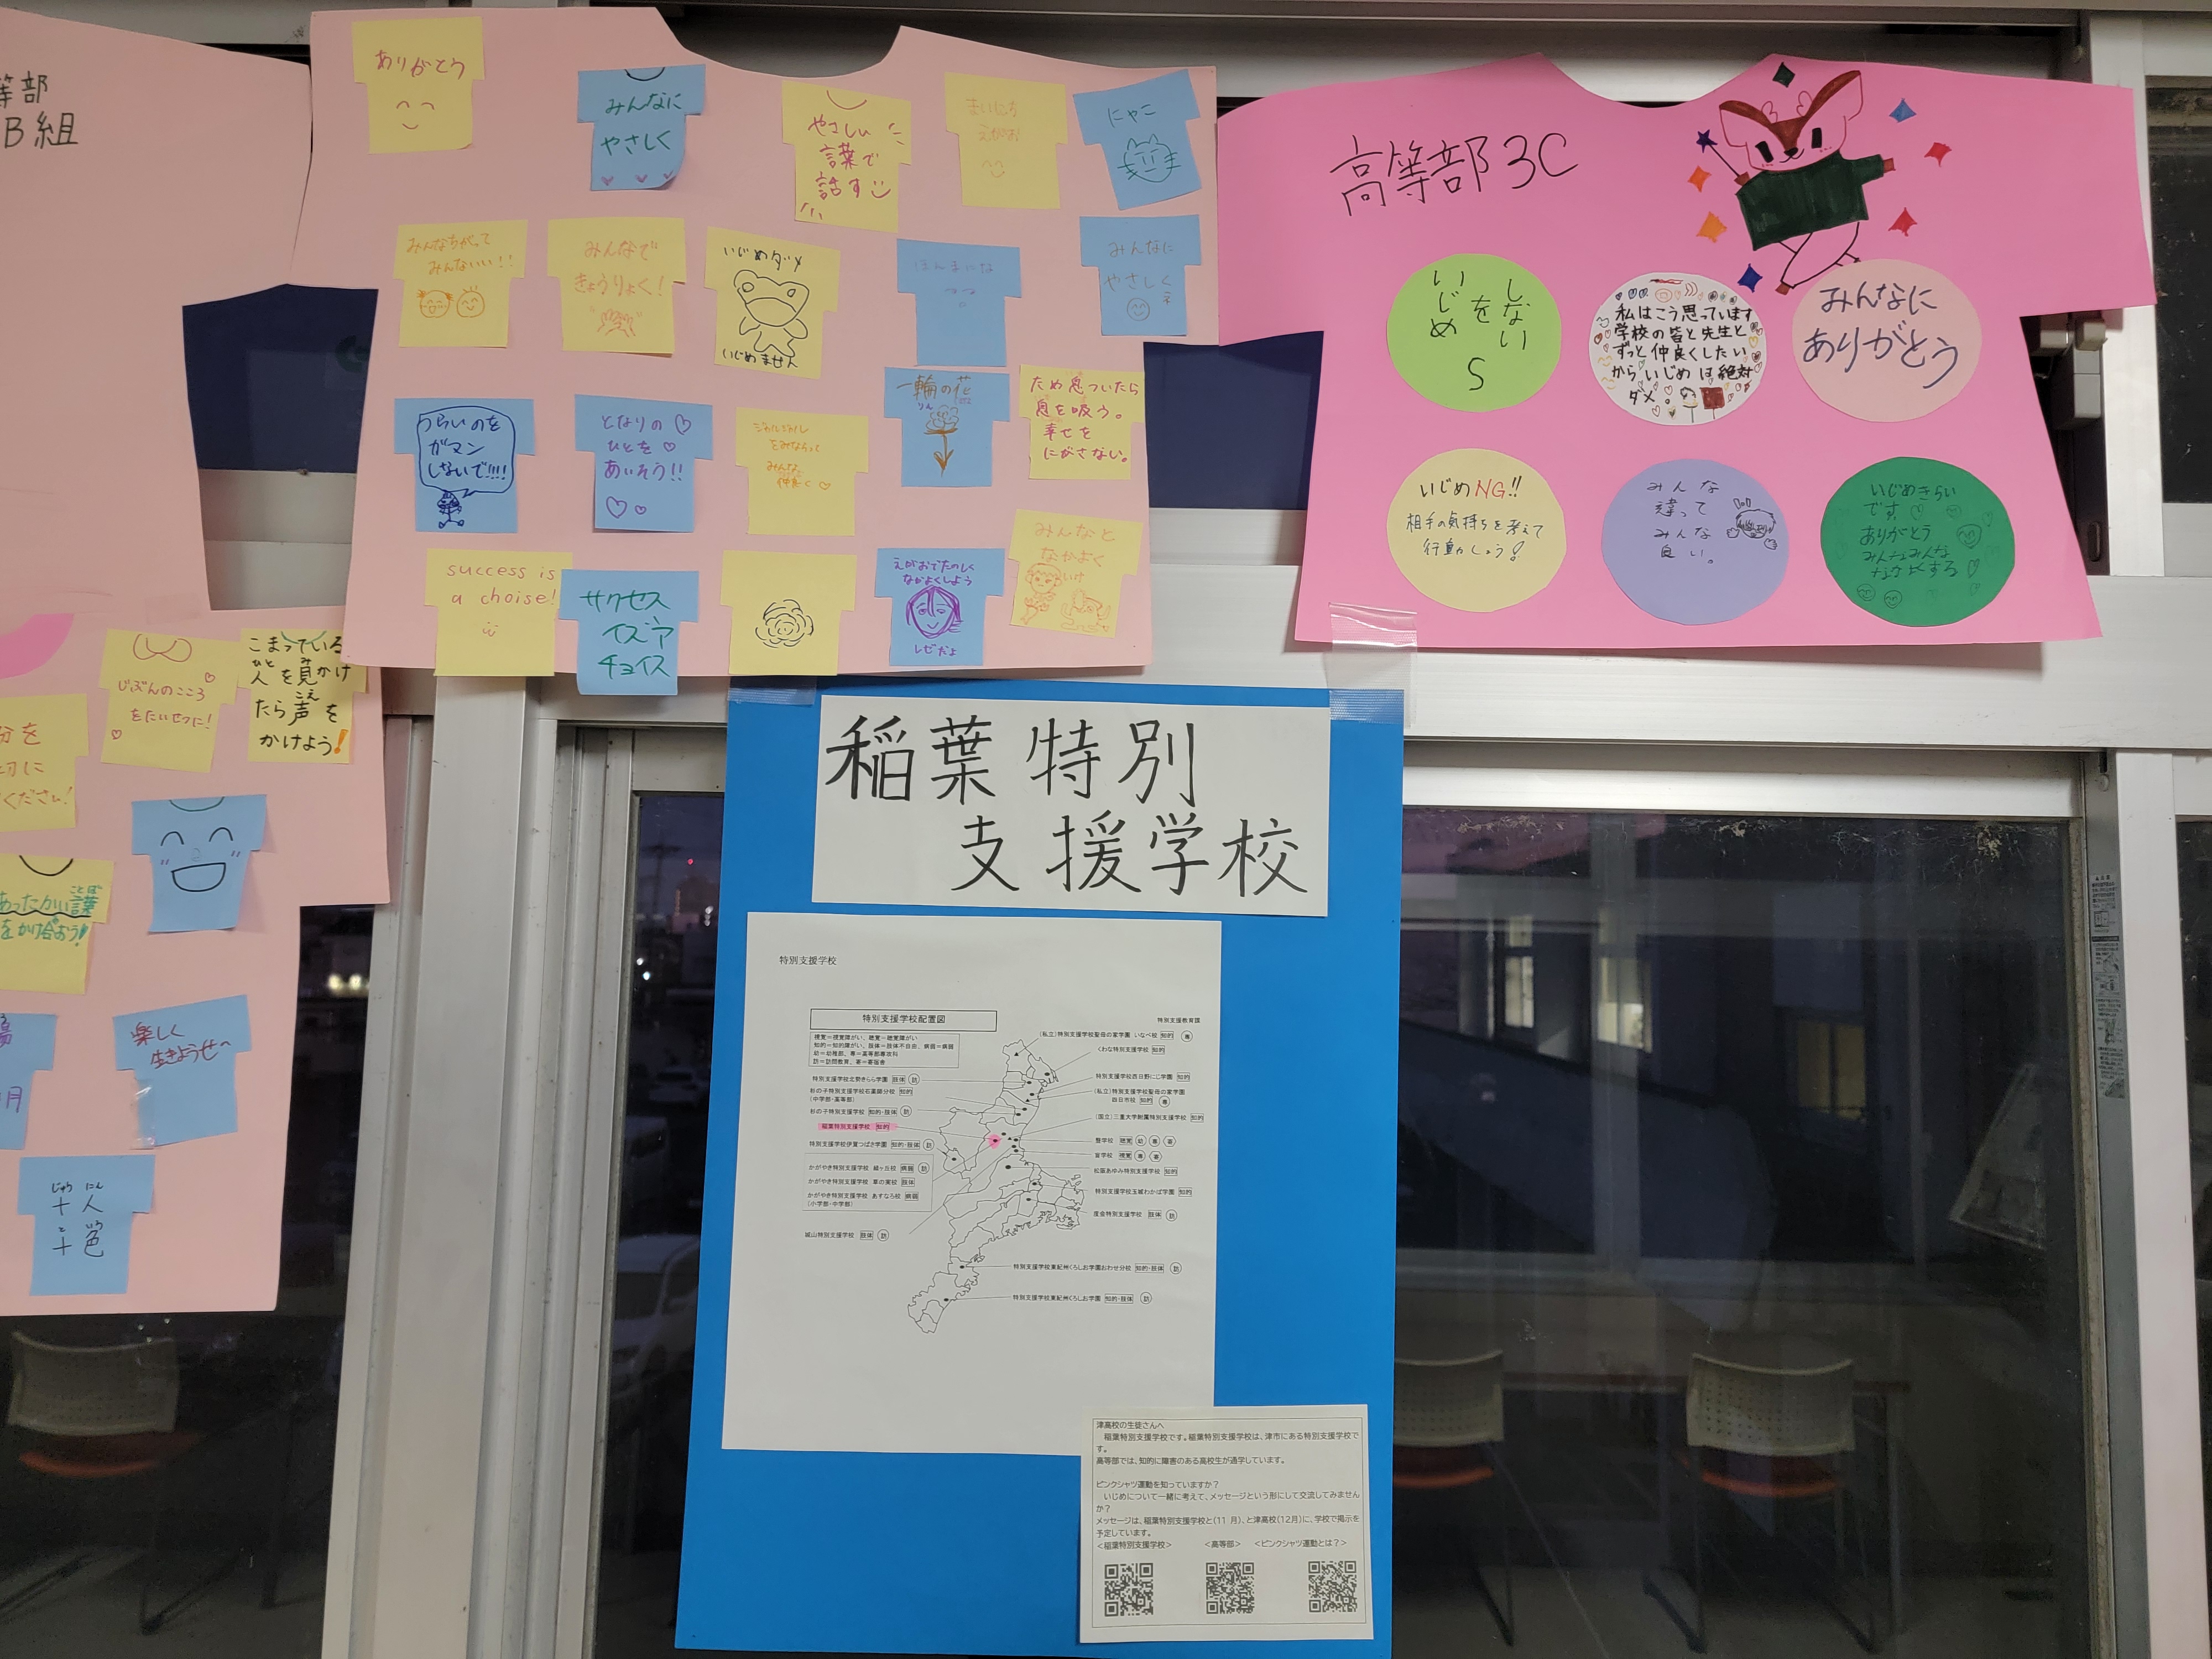 等部
B組
ありがとう
みんなに
やさしく
やさしい
言葉で
話す
まいにち
えがお
にゃこ
みんなちがって
みんないい!!
みんなで
きょうりょく!
いじめダメ
いじめません
ほんまにな
みんなに
やさしくネ
つらいのを
ガマン
しないで!!!!
となりの
ひとを
あいそう!!
をみならって
みんな
仲良く
一輪の花
りん
ため息ついたら
息を吸う。
幸せを
にがさない。
success is
a choise!
サクセス
イズア
チョイス
えがおでたのしく
なかよくしよう
みんなと
なかよく
高等部3C
いじめ
を
しない
S
私はこう思っています
学校の皆と先生と
ずっと仲良くしたい
からいじめは絶対
ダメ。
みんなに
ありがとう
いじめNG!!
相手の気持ちを考えて
行動しよう!
みんな
違って
みんな
良い。
いじめきらい
です
ありがとう
みんなみんな
なかよくする
じぶんのこころ
をたいせつに!
こまっている
ひと み
人を見かけ
こえ
たら声を
かけよう!
分を
切に
ください!
ことば
あったかい言葉
をかけ合おう!
楽しく
生きようぜ〜
月
じゅう にん
十人
と いろ
十色
稲葉特別
支援学校
特別支援学校
特別支援学校配置図
特別支援教育課
視覚=視覚障がい、聴覚=聴覚障がい
知的=知的障がい、肢体=肢体不自由、病弱=病弱
幼=幼稚部、専=高等部専攻科
訪=訪問教育、寄=寄宿舎
(私立)特別支援学校聖母の家学園 いなべ校 知的 専
くわな特別支援学校 知的
特別支援学校北勢きらら学園 肢体 訪
特別支援学校西日野にじ学園 知的
杉の子特別支援学校石薬師分校 知的
(中学部・高等部)
(私立)特別支援学校聖母の家学園
四日市校 知的 専
杉の子特別支援学校 知的・肢体 訪
(国立)三重大学附属特別支援学校 知的
稲葉特別支援学校 知的
聾学校 聴覚 幼 専 寄
特別支援学校伊賀つばさ学園 知的・肢体 訪
盲学校 視覚 専 寄
かがやき特別支援学校 緑ヶ丘校 病弱 訪
松阪あゆみ特別支援学校 知的
かがやき特別支援学校 草の実校 肢体
特別支援学校玉城わかば学園 知的
かがやき特別支援学校 あすなろ校 病弱
(小学部・中学部)
度会特別支援学校 肢体 訪
城山特別支援学校 肢体 訪
特別支援学校東紀州くろしお学園おわせ分校 知的・肢体 訪
特別支援学校東紀州くろしお学園 知的・肢体 訪
津高校の生徒さんへ
稲葉特別支援学校です。稲葉特別支援学校は、津市にある特別支援学校で
す。
高等部では、知的に障害のある高校生が通学しています。
ピンクシャツ運動を知っていますか?
いじめについて一緒に考えて、メッセージという形にして交流してみません
か?
メッセージは、稲葉特別支援学校と(11月)、と津高校(12月)に、学校で掲示を
予定しています。
<稲葉特別支援学校> <高等部> <ピンクシャツ運動とは?>